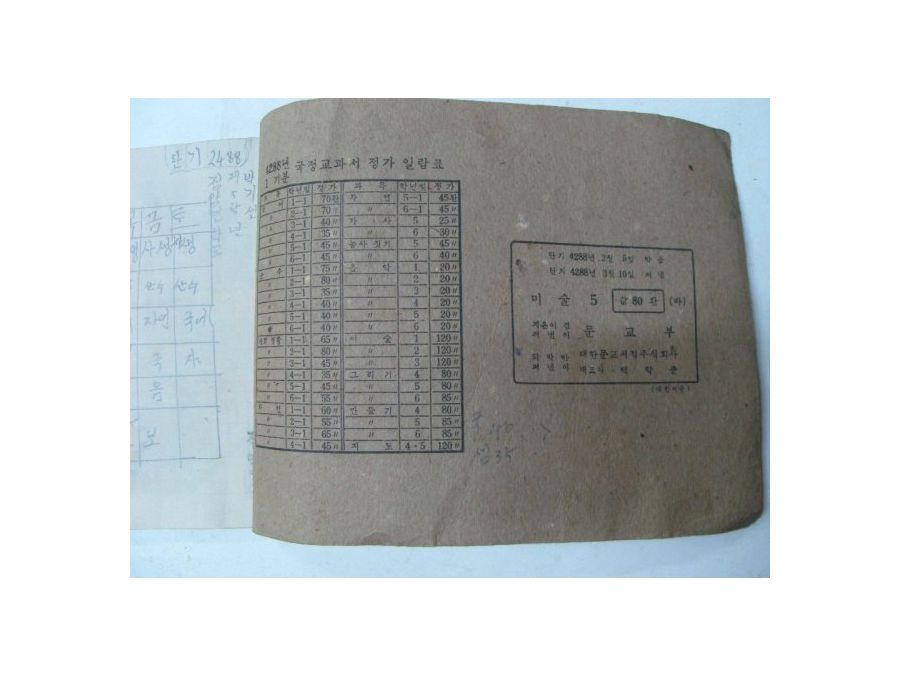 단기 2488
제5학년
박기선
금 토
사생 생
산수 산수
자연 국어
국 사
음
보
4288년 국정교과서 정가 일람표
1 기분
학년별 정가 과목 학년별 정가
1—1 70환 자연 5—1 45환
2—1 70〃 〃 6—1 45〃
3—1 40〃 가사 5 25〃
〃 4—1 35〃 〃 6 30〃
〃 5—1 45〃 농사짓기 5 45〃
〃 6—1 45〃 〃 6 40〃
산수 1—1 75〃 음악 1 20〃
〃 2—1 80〃 〃 2 20〃
〃 3—1 35〃 〃 3 20〃
〃 4—1 40〃 〃 4 20〃
〃 5—1 40〃 〃 5 20〃
〃 6—1 40〃 〃 6 20〃
사회생활 1—1 65〃 미술 1 120〃
〃 2—1 80〃 〃 2 120〃
〃 3—1 45〃 〃 3 120〃
〃 4—1 35〃 그리기 4 80〃
〃 5—1 45〃 〃 5 80〃
〃 6—1 55〃 〃 6 85〃
자연 1—1 60〃 만들기 4 80〃
〃 2—1 55〃 〃 5 85〃
〃 3—1 65〃 〃 6 85〃
〃 4—1 45〃 지도 4·5 120〃
단기 4288년 3월 5일 박음
단기 4288년 3월 10일 펴냄
미술 5 값 80환 (바)
지은이 겸 펴낸이 문교부
되박아 펴낸이 대한문교서적주식회사
대표자